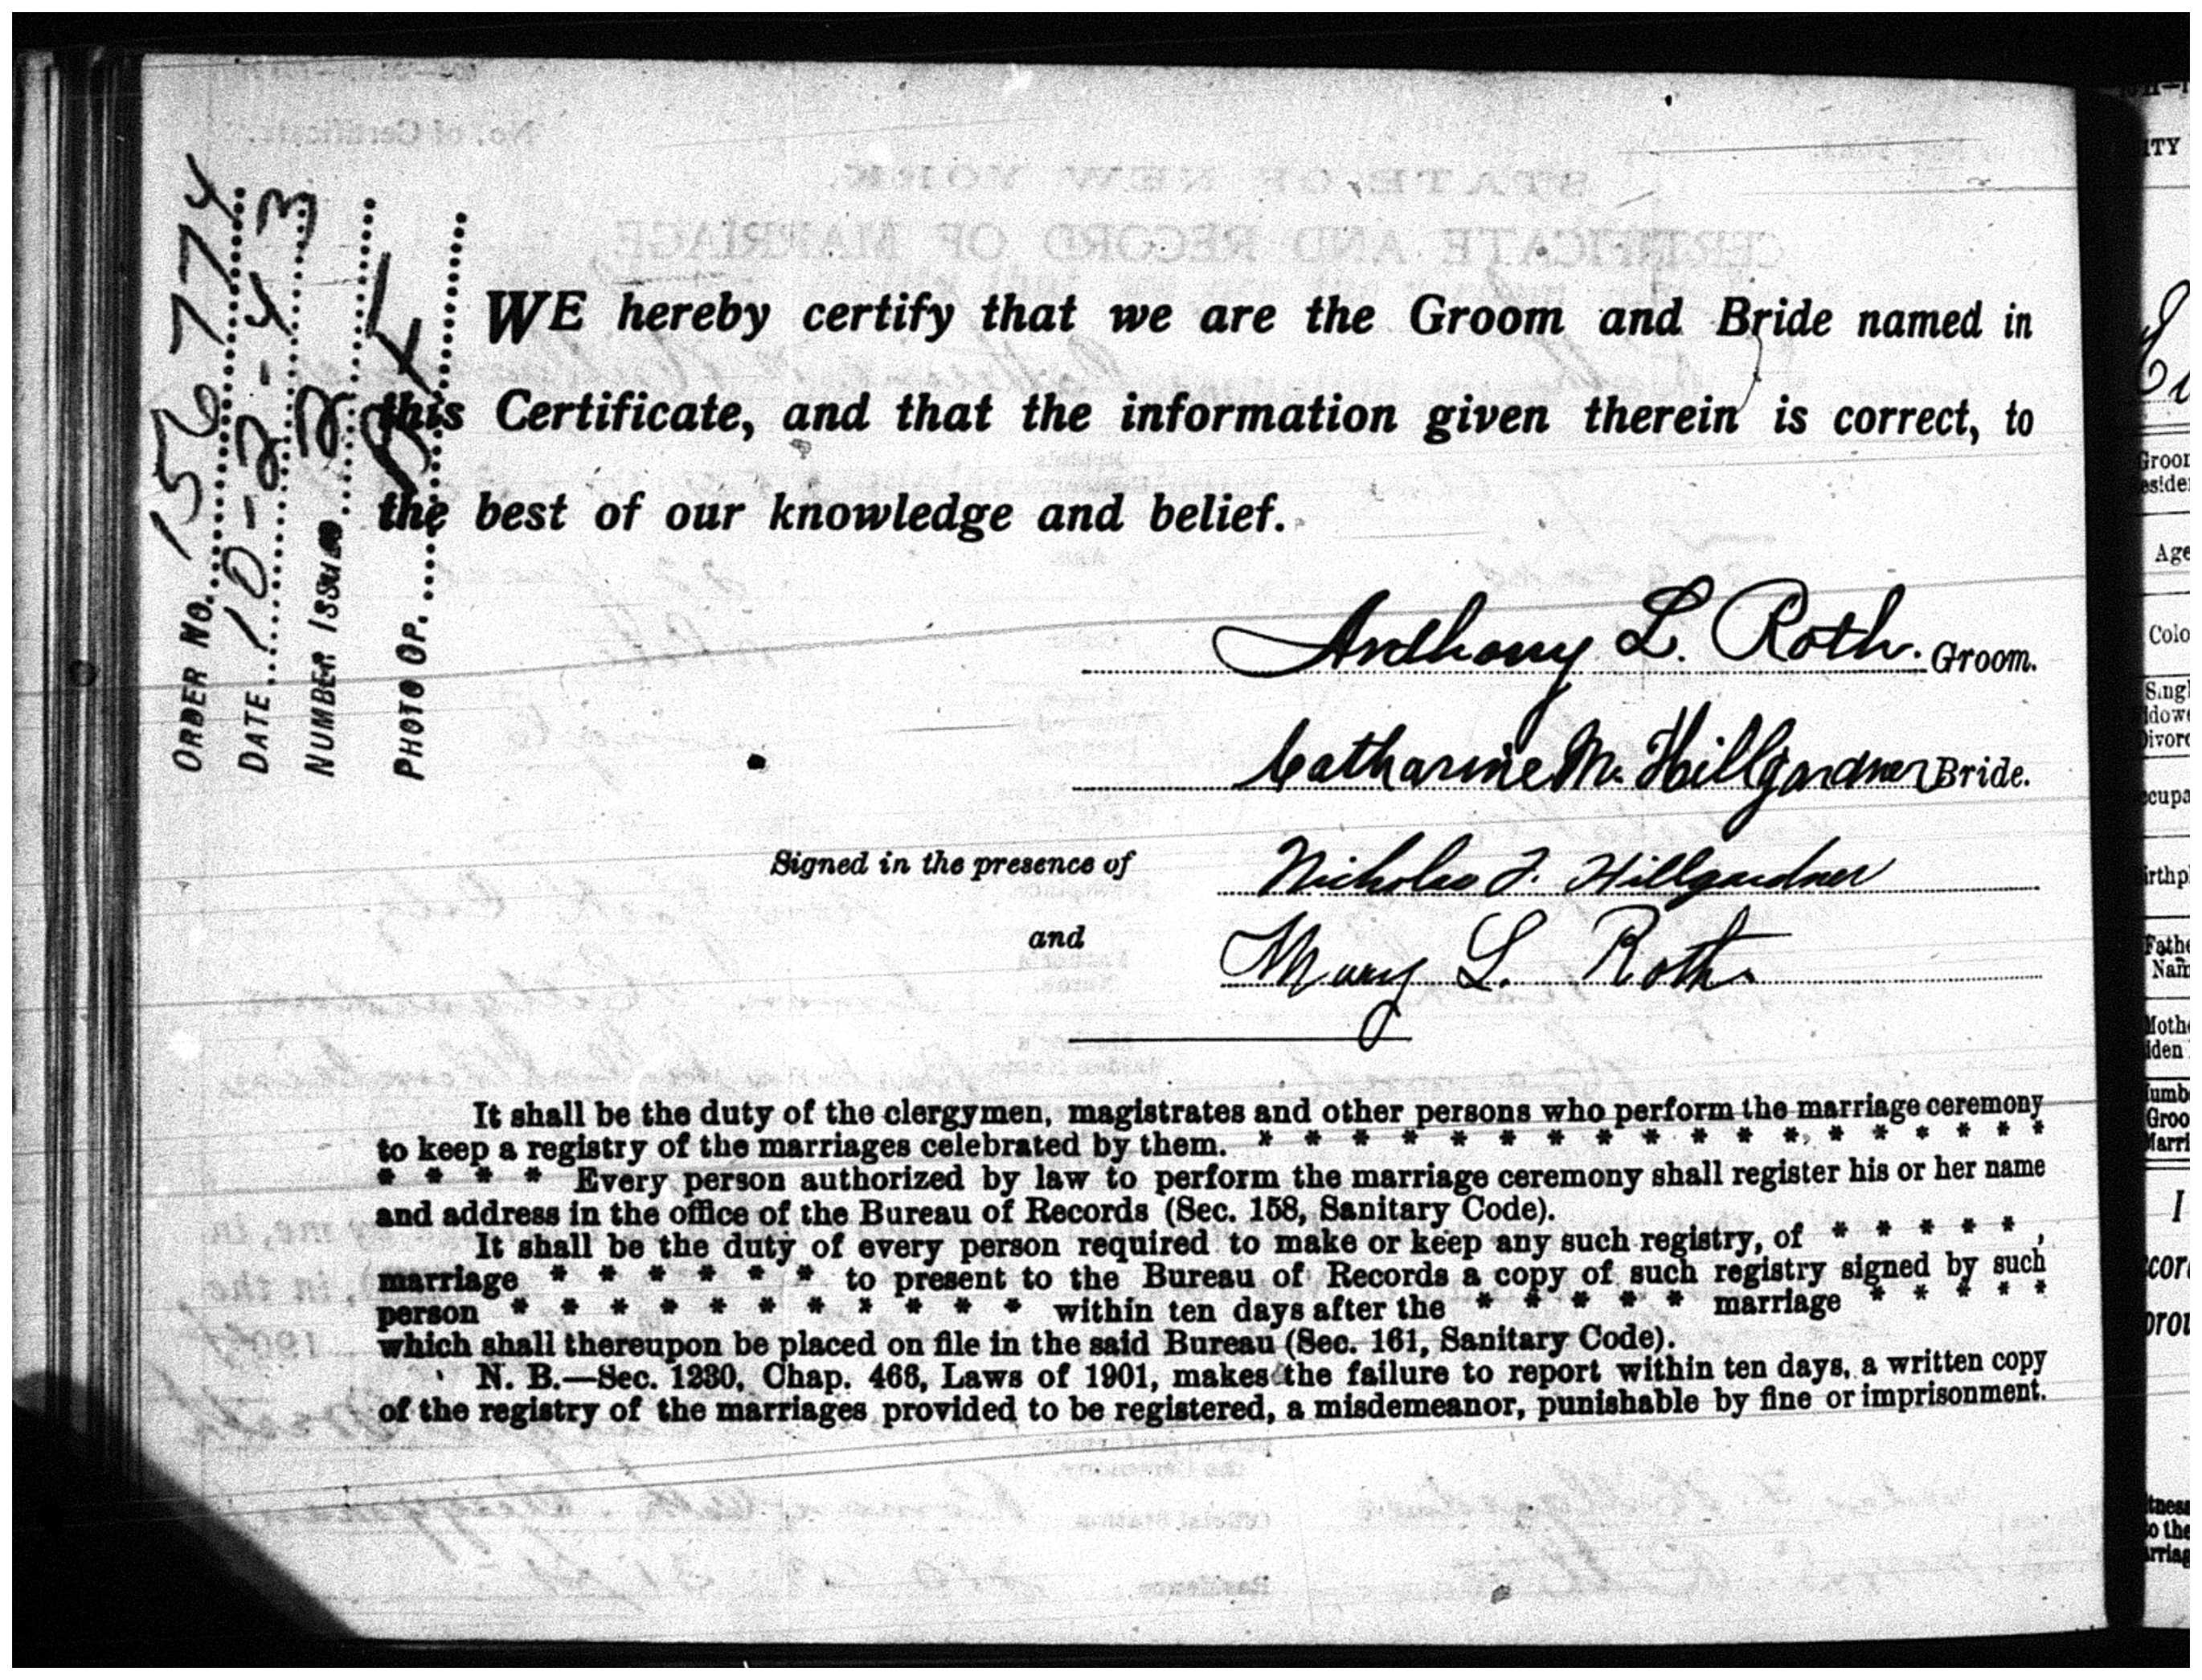 ORDER NO. 156774
DATE 10-2-43
NUMBER ISSUED 2
PHOTO OP.
WE hereby certify that we are the Groom and Bride named in
this Certificate, and that the information given therein is correct, to
the best of our knowledge and belief.
Anthony L. Roth. Groom.
Catharine M. Hillgardner Bride.
Signed in the presence of Nicholas F. Hillgardner
and Mary L. Roth.
It shall be the duty of the clergymen, magistrates and other persons who perform the marriage ceremony
to keep a registry of the marriages celebrated by them. * * * * * * * * * * * * * * * * * *
* * * * Every person authorized by law to perform the marriage ceremony shall register his or her name
and address in the office of the Bureau of Records (Sec. 158, Sanitary Code).
It shall be the duty of every person required to make or keep any such registry, of * * * * * ,
marriage * * * * * * to present to the Bureau of Records a copy of such registry signed by such
person * * * * * * * * * * * within ten days after the * * * * * marriage * * * * *
which shall thereupon be placed on file in the said Bureau (Sec. 161, Sanitary Code).
N. B.—Sec. 1230, Chap. 466, Laws of 1901, makes the failure to report within ten days, a written copy
of the registry of the marriages provided to be registered, a misdemeanor, punishable by fine or imprisonment.